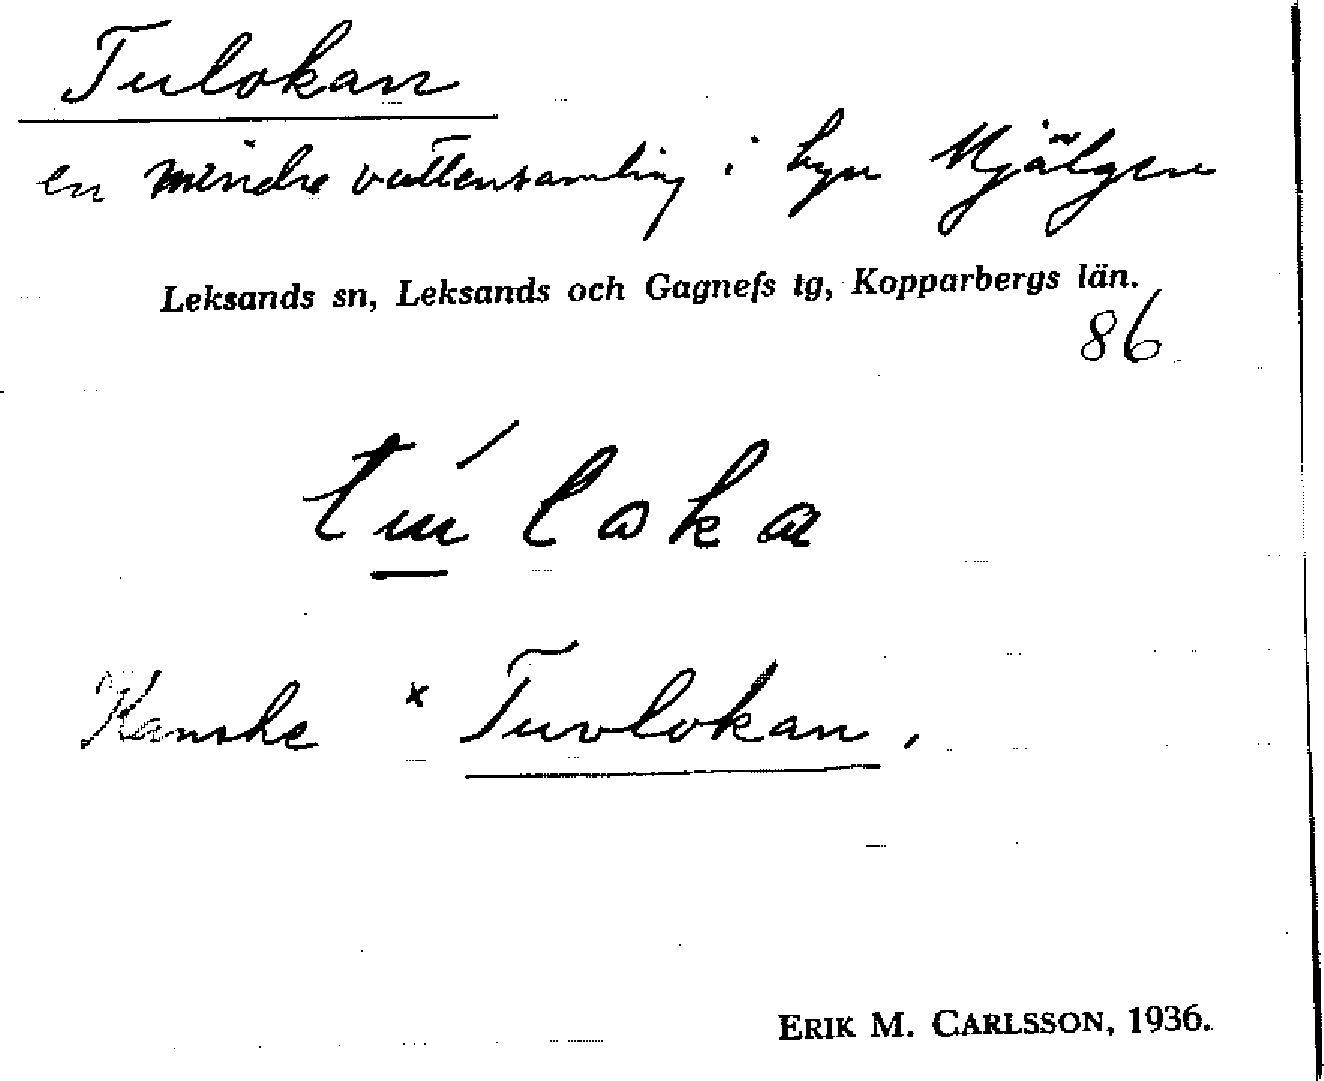 Tulokan
en mindre vattensamling i byn Hjälgen
Leksands sn, Leksands och Gagnefs tg, Kopparbergs län.
86
tu´loka
Kanske * Tuvlokan.
ERIK M. CARLSSON, 1936.